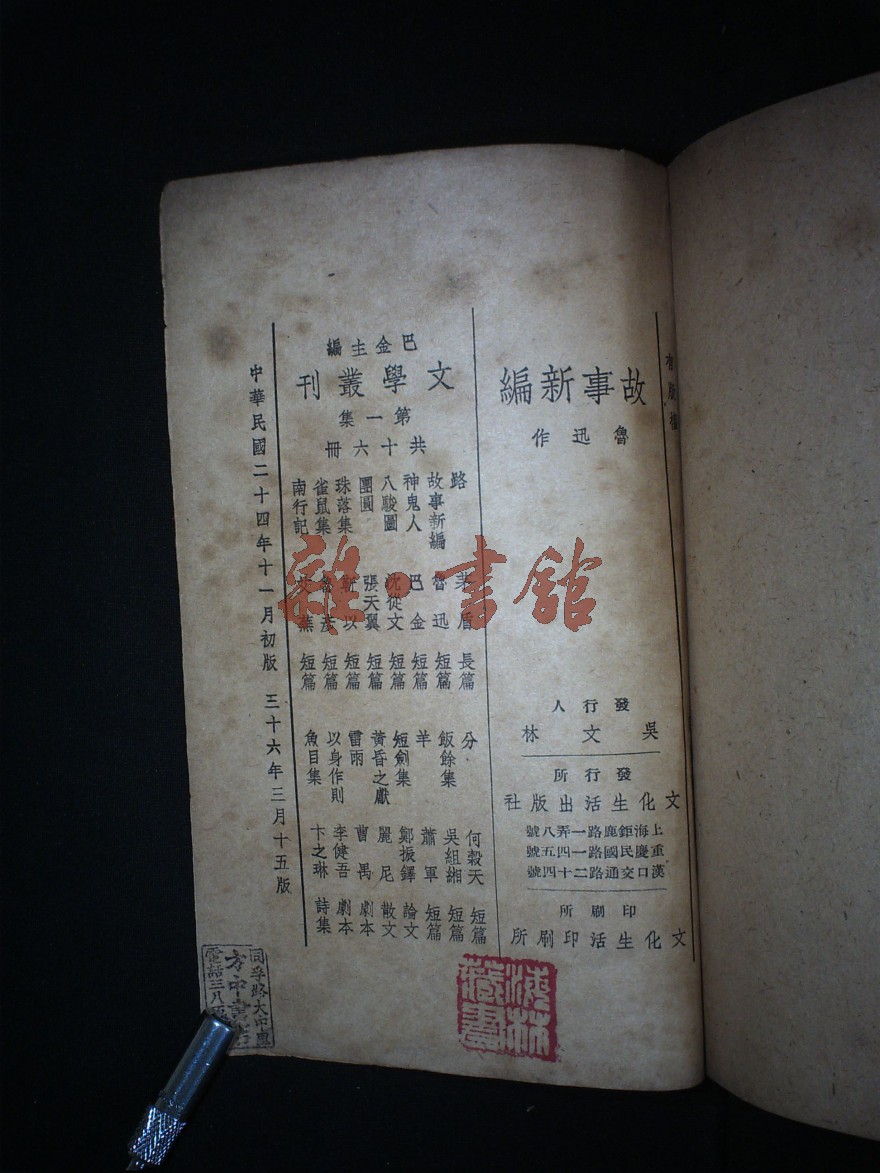 有版權
故事新編
魯迅作
發行人
吳文林
發行所
文化生活出版社
上海鉅鹿路一弄八號
重慶民國路一四五號
漢口交通路二十四號
印刷所
文化生活印刷所
巴金主編
文學叢刊
第一集
共十六冊
路 茅盾 長篇
故事新編 魯迅 短篇
神鬼人 巴金 短篇
八駿圖 沈從文 短篇
團圓 張天翼 短篇
珠落集 靳以 短篇
雀鼠集 魯彥 短篇
南行記 艾蕪 短篇
分 何穀天 短篇
飯餘集 吳組緗 短篇
羊 蕭軍 短篇
短劍集 鄭振鐸 論文
黃昏之獻 麗尼 散文
雷雨 曹禺 劇本
以身作則 李健吾 劇本
魚目集 卞之琳 詩集
中華民國二十四年十一月初版 三十六年三月十五版
雜·書館
同孚路大中里
方中書店
電話三八
林
藏書